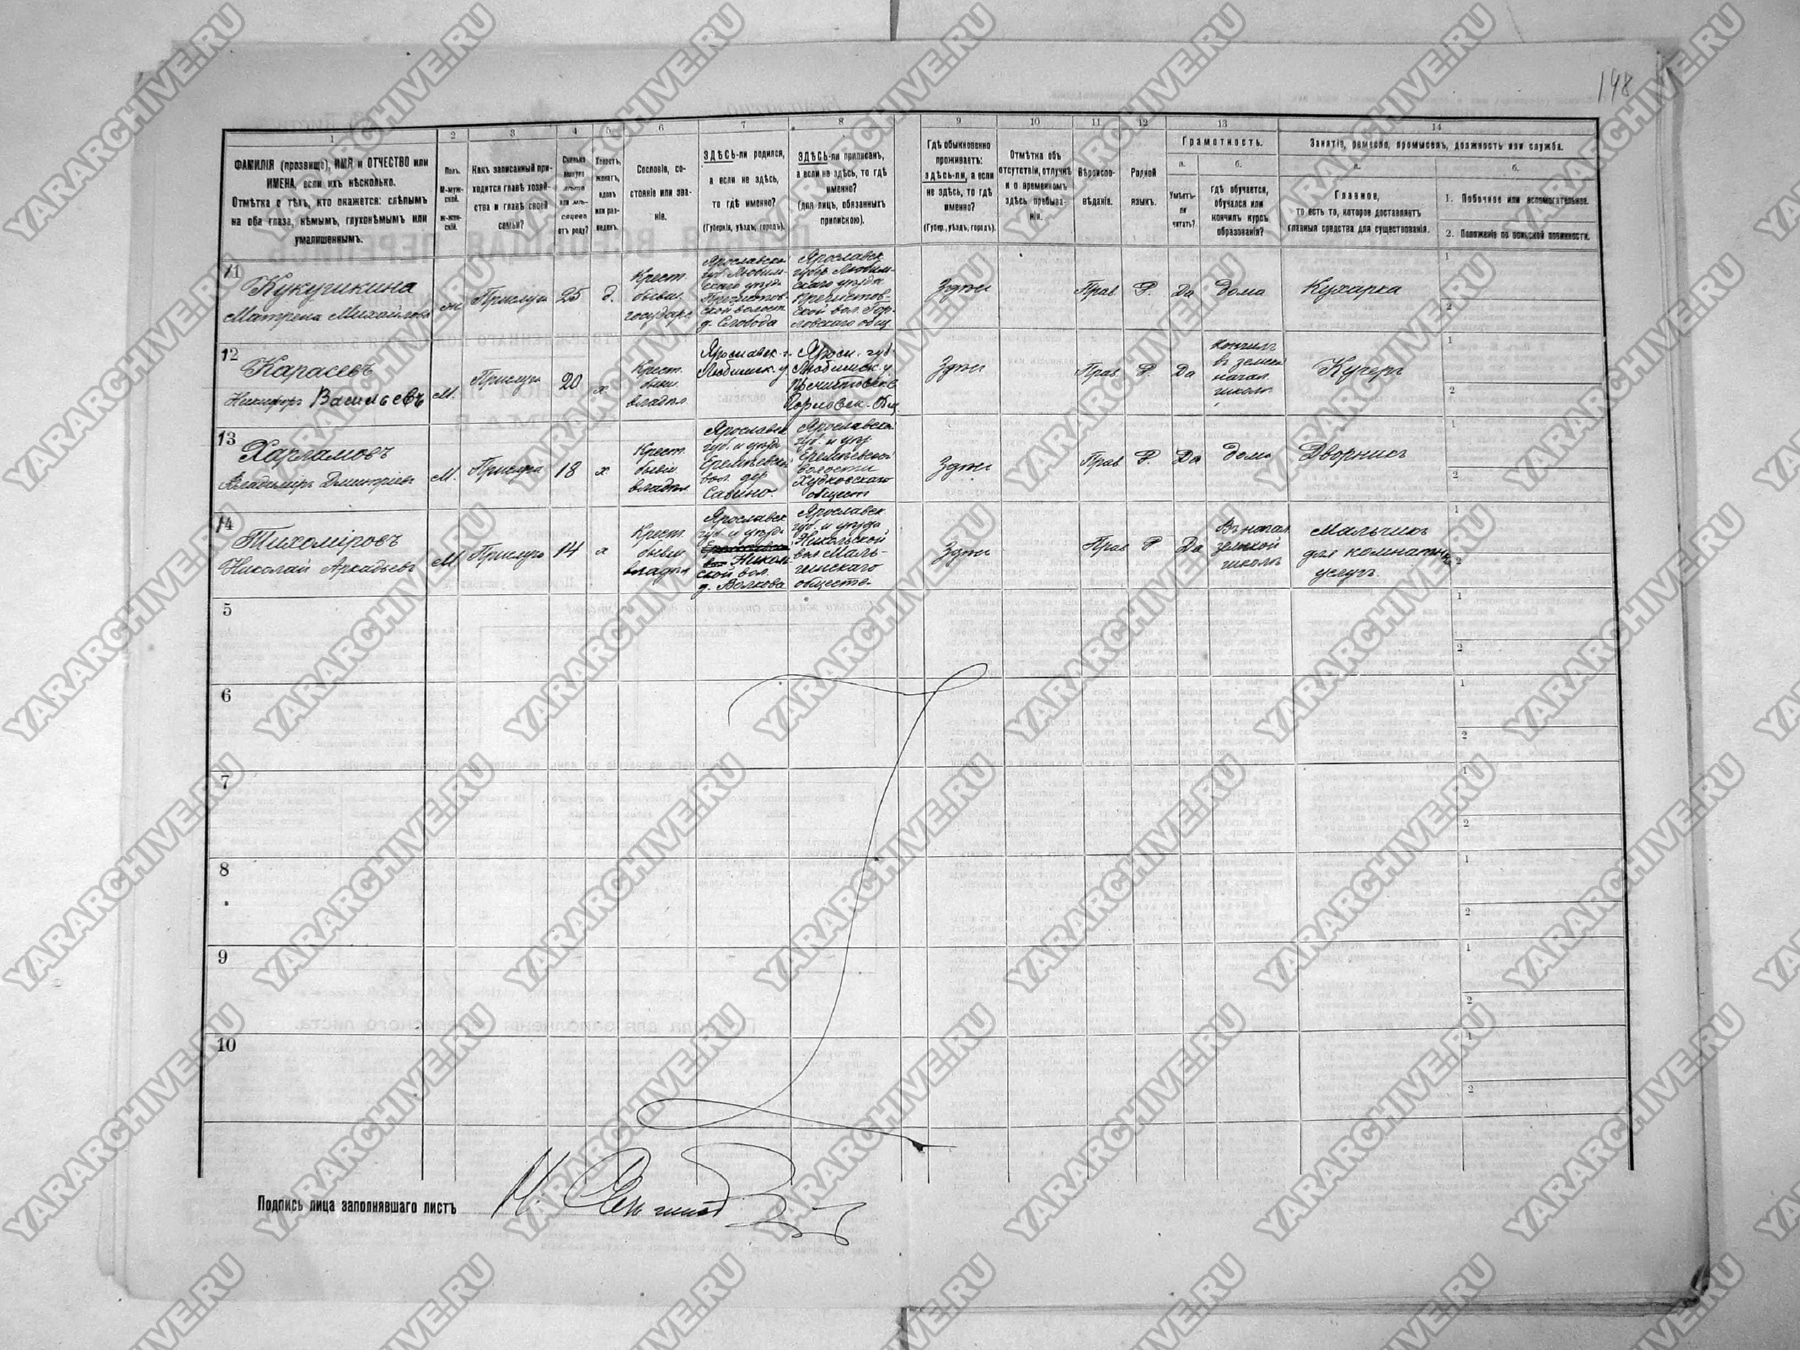 148
1 2 3 4 5 6 7 8 9 10 11 12 13 14
ФАМИЛІЯ (прозвище), ИМЯ и ОТЧЕСТВО или
ИМЕНА, если ихъ нѣсколько.
Отмѣтка о тѣхъ, кто окажется: слѣпымъ
на оба глаза, нѣмымъ, глухонѣмымъ или
умалишеннымъ.
Полъ.
М-муж-
ской.
Ж-жен-
скій.
Какъ записанный при-
ходится главѣ хозяй-
ства и главѣ своей
семьи?
Сколько
минуло
лѣтъ
или мѣ-
сяцевъ
отъ роду?
Холостъ,
женатъ,
вдовъ
или раз-
веденъ.
Сословіе, со-
стояніе или зва-
ніе.
ЗДѢСЬ-ли родился,
а если не здѣсь,
то гдѣ именно?
(Губернія, уѣздъ, городъ).
ЗДѢСЬ-ли приписанъ,
а если не здѣсь, то гдѣ
именно?
(для лицъ, обязанныхъ
припискою).
Гдѣ обыкновенно
проживаетъ:
здѣсь-ли, а если
не здѣсь, то гдѣ
именно?
(Губер., уѣздъ, городъ).
Отмѣтка объ
отсутствіи, отлучкѣ
и о временномъ
здѣсь пребыва-
ніи.
Вѣроиспо-
вѣданіе.
Родной
языкъ.
Грамотность.
а.
Умѣетъ-
ли
читать?
б.
гдѣ обучается,
обучался или
кончилъ курсъ
образованія?
Занятіе, ремесло, промыселъ, должность или служба.
а.
Главное,
то есть то, которое доставляетъ
главныя средства для существованія.
б.
1. Побочное или вспомогательное.
2. Положеніе по воинской повинности.
11
Кукушкина
Матрена Михайлова
ж.
Прислуга
25
д.
Крест.
бывш.
государ.
Ярославск.
губ. Любим-
скаго уѣзда
Пречистов-
ской волост.
д. Слобода
Ярославск.
губер. Любим-
скаго уѣзда
Пречистов-
ской вол. Гор-
ловскаго общ.
Здѣсь
Прав.
Р.
Да
дома
Кухарка
1
2
12
Карасевъ
Никифоръ Васильевъ
М.
Прислуга
20
х
Крест.
бывш.
владѣл.
Ярославск. г.
Любимск. у.
Яросл. губ.
Любимск. у.
Пречистовск.
Горловск. Общ.
Здѣсь
Прав.
Р.
Да
кончилъ
въ земск.
начал.
школѣ
Кучеръ
1
2
13
Харламовъ
Владимiръ Дмитріевъ
М.
Прислуга
18
х
Крест.
бывш.
владѣл.
Ярославск.
губ. и уѣзда
Еремѣевской
вол. дер.
Савино.
Ярославск.
губ. и уѣз.
Еремѣевской
волости
Худковскаго
обществ.
Здѣсь
Прав.
Р.
Да
дома
Дворникъ
1
2
14
Тихоміровъ
Николай Аркадьевъ
М
Прислуга
14
х
Крест.
бывш.
владѣл.
Ярославск.
губ. и уѣзда
Николь-
ской вол.
д. Волкова
Ярославск.
губ. и уѣзда
Никольской
вол.
общества
Здѣсь
Прав
Р
Да
Въ начал.
земской
школѣ
Мальчикъ
для комнатных
услугъ.
1
2
5
1
2
6
1
2
7
1
2
8
1
2
9
1
2
10
1
2
Подпись лица заполнявшаго листъ
YARARCHIVE.RU